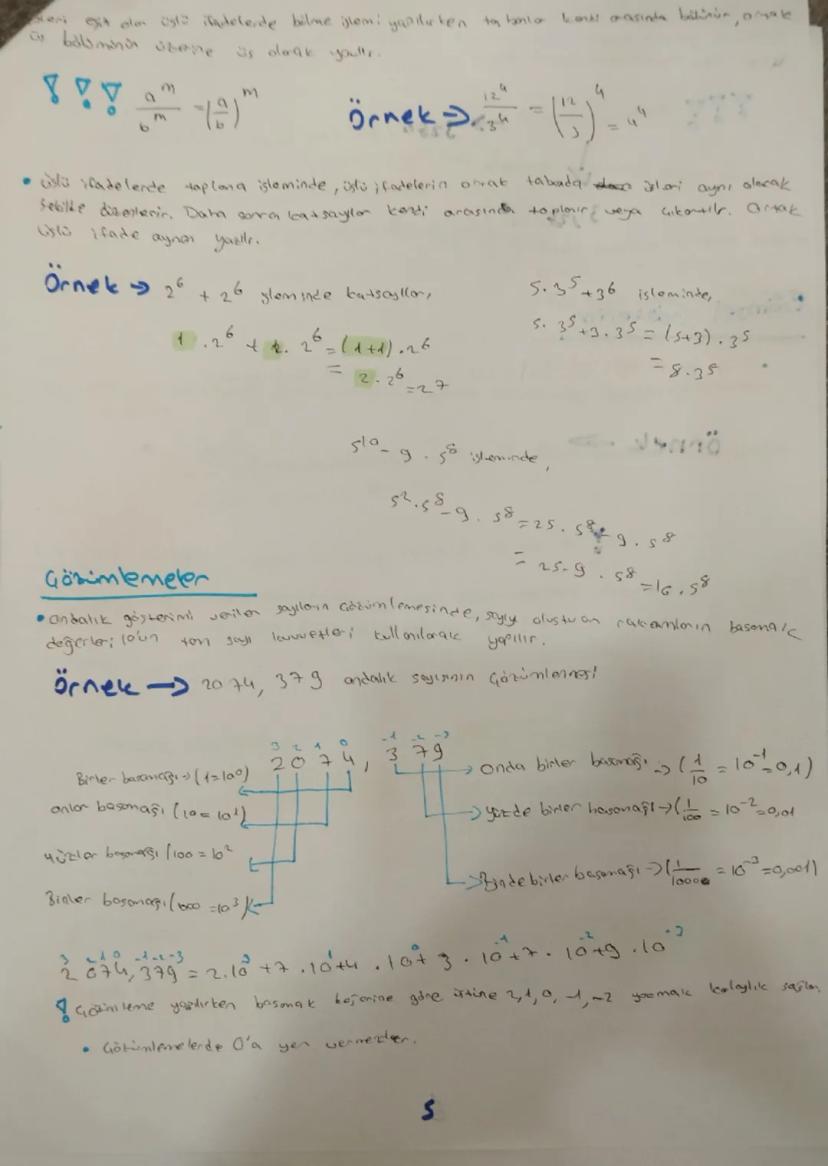 üsleri eşit olan üslü ifadelerde bölme işlemi yapılırken tabanlar kendi arasında bölünür, ortak
üs bölümünün üzerine üs olarak yazılır.
!!! a^m / b^m = (a/b)^m
Örnek → 12^4 / 3^4 = (12/3)^4 = 4^4
• üslü ifadelerde toplama işleminde, üslü ifadelerin ortak tabada üsleri aynı olacak
şekilde düzenlenir. Daha sonra katsayılar kendi arasında toplanır veya çıkartılır. Ortak
üslü ifade aynen yazılır.
Örnek → 2^6 + 2^6 işleminde katsayılar,
1 . 2^6 + 1 . 2^6 = (1+1) . 2^6
= 2 . 2^6 = 2^7
5 . 3^5 + 3^6 işleminde,
5 . 3^5 + 3 . 3^5 = (5+3) . 3^5
= 8 . 3^5
5^10 - 9 . 5^8 işleminde,
5^2 . 5^8 - 9 . 5^8 = 25 . 5^8 - 9 . 5^8
= 25-9 . 5^8 = 16 . 5^8
Çözümlemeler
• ondalık gösterimi verilen sayıların çözümlemesinde, sayıyı oluşturan rakamların basamak
değerleri 10'un tam sayı kuvvetleri kullanılarak yapılır.
Örnek → 2074, 379 ondalık sayısının çözümlemesi
3 2 1 0 -1 -2 -3
2 0 7 4 , 3 7 9
Birler basamağı → (1=10^0)
onlar basamağı (10 = 10^1)
yüzler basamağı (100 = 10^2
Binler basamağı (1000 = 10^3)
Onda birler basamağı → (1/10 = 10^-1 = 0,1)
yüzde birler basamağı → (1/100 = 10^-2 = 0,01
Binde birler basamağı → (1/1000 = 10^-3 = 0,001)
3 2 1 0 -1 -2 -3
2 074, 379 = 2 . 10^3 + 7 . 10^1 + 4 . 10^0 + 3 . 10^-1 + 7 . 10^-2 + 9 . 10^-3
! Çözümleme yapılırken basamak üstüne 2, 1, 0, -1, -2 yazmak kolaylık sağlar.
• Çözümlemelerde 0'a yer verilmez.
5